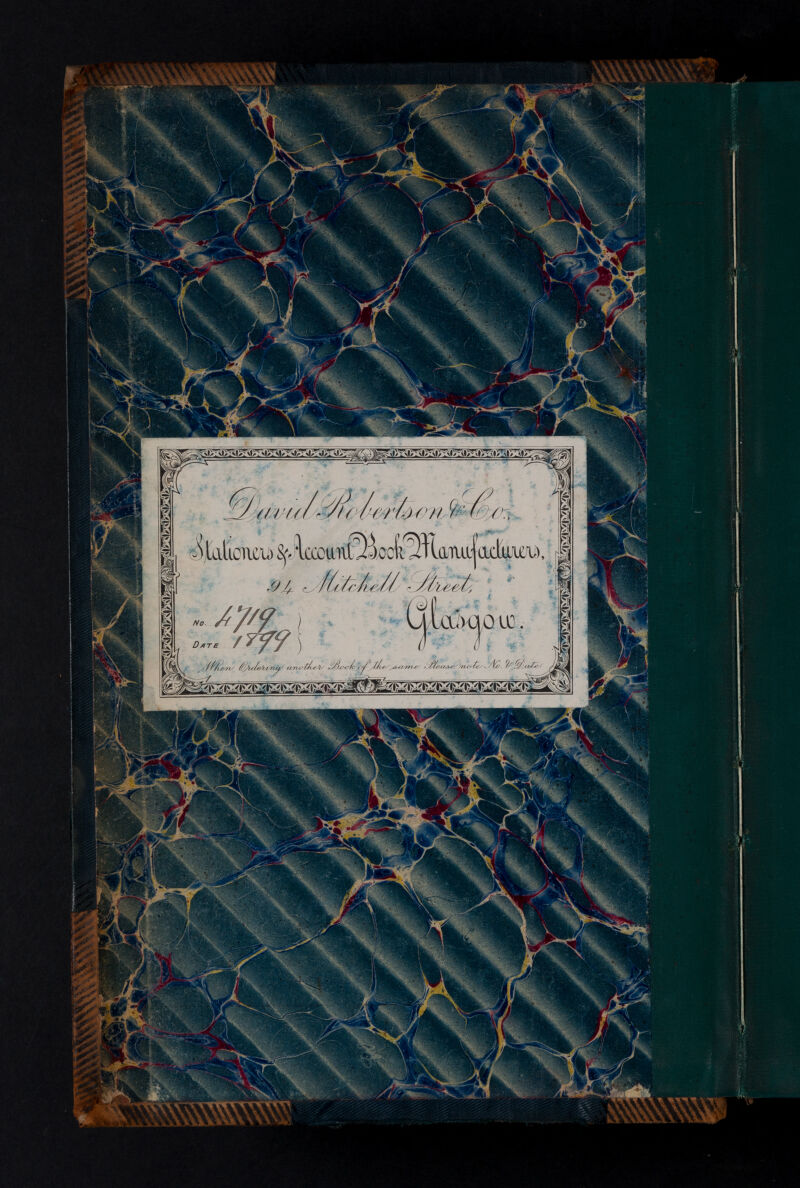 David Robertson & Co.
Stationers & Account Book Manufacturers,
94 Mitchell Street,
Glasgow.
No. 4719
DATE 1899
When Ordering another Book of the same Please note No. & Date